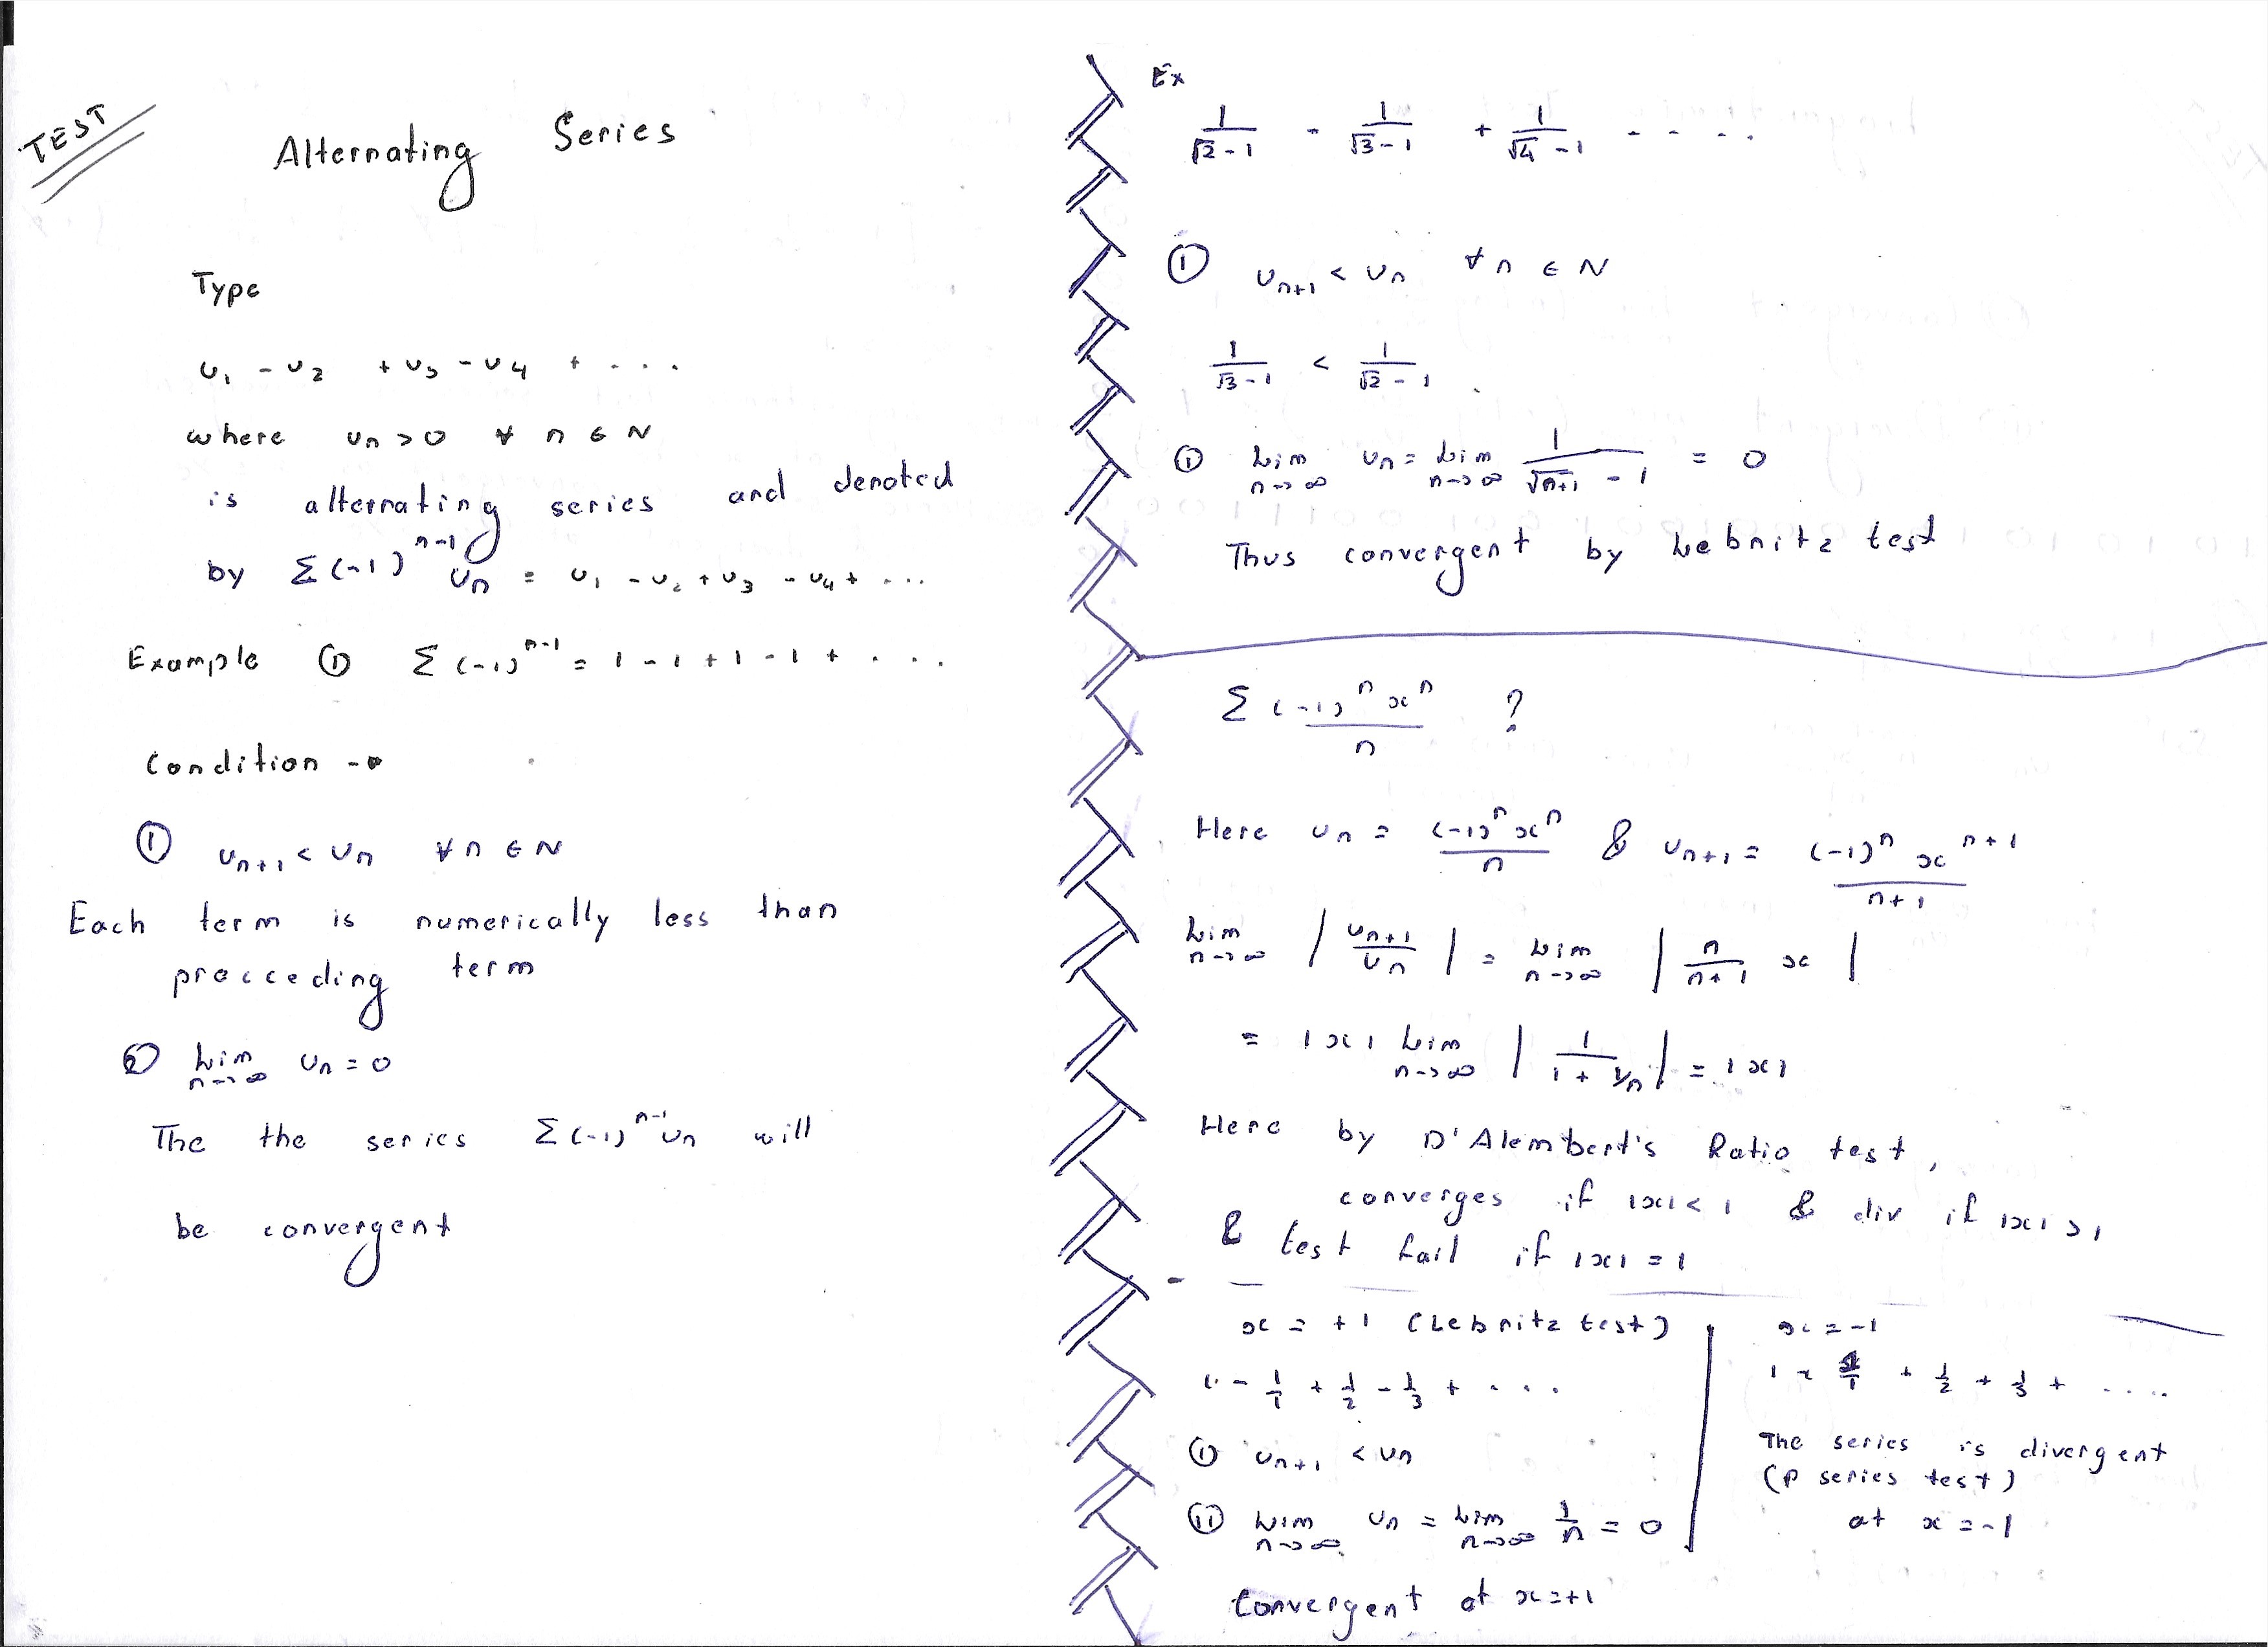 TEST
Alternating Series
Type
u₁ - u₂ + u₃ - u₄ + . . .
where uₙ > 0 ∀ n ∈ N
is alternating series and denoted
by Σ(-1)ⁿ⁻¹ uₙ = u₁ - u₂ + u₃ - u₄ + ...
Example ① Σ(-1)ⁿ⁻¹ = 1 - 1 + 1 - 1 + . . .
Condition →
① uₙ₊₁ < uₙ ∀ n ∈ N
Each term is numerically less than
procceding term
② Lim n→∞ uₙ = 0
The the series Σ(-1)ⁿ⁻¹ uₙ will
be convergent
Ex
1/(√2 - 1) - 1/(√3 - 1) + 1/(√4 - 1) - - . .
① uₙ₊₁ < uₙ ∀ n ∈ N
1/(√3 - 1) < 1/(√2 - 1)
① Lim n→∞ uₙ = Lim n→∞ 1/(√n+1 - 1) = 0
Thus convergent by Lebnitz test
Σ (-1)ⁿ xⁿ / n ?
Here uₙ = (-1)ⁿ xⁿ / n & uₙ₊₁ = (-1)ⁿ xⁿ⁺¹ / n+1
Lim n→∞ | uₙ₊₁ / uₙ | = Lim n→∞ | n/(n+1) x |
= |x| Lim n→∞ | 1/(1 + 1/n) | = |x|
Here by D'Alembert's Ratio test,
converges if |x| < 1 & div if |x| > 1
& test fail if |x| = 1
x = +1 (Lebnitz test)
- 1/1 + 1/2 - 1/3 + . . .
① uₙ₊₁ < uₙ
⑪ Lim n→∞ uₙ = Lim n→∞ 1/n = 0
Convergent at x = +1
x = -1
1/1 + 1/2 + 1/3 + ....
The series is divergent
(P series test)
at x = -1